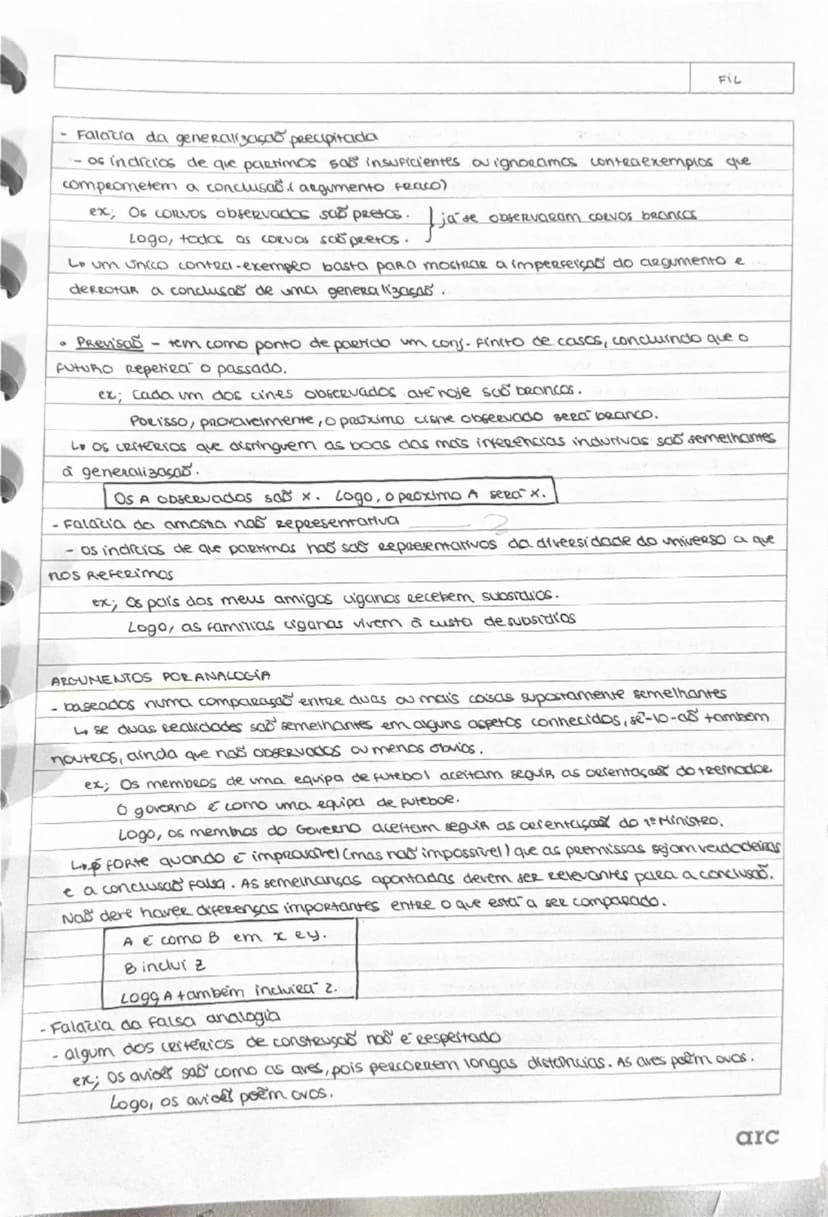 FIL
- Falácia da generalização precipitada
- os indícios de que partimos são insuficientes ou ignoramos contraexemplos que
comprometem a conclusão (argumento fraco)
ex; Os corvos observados são pretos. } já se observaram corvos brancos
Logo, todos os corvos são pretos.
↳ um único contra-exemplo basta para mostrar a imperfeição do argumento e
derrotar a conclusão de uma generalização.
• Previsão - tem como ponto de partida um conj. finito de casos, concluindo que o
futuro repetirá o passado.
ex; Cada um dos cines observados até hoje são brancos.
Por isso, provavelmente, o próximo cisne observado será branco.
↳ os critérios que distinguem as boas das más inferências indutivas são semelhantes
à generalização.
Os A observados são x. Logo, o próximo A será x.
- Falácia da amostra não representativa ?
- os indícios de que partimos não são representativos da diversidade do universo a que
nos referimos
ex; Os pais dos meus amigos ciganos recebem subsídios.
Logo, as famílias ciganas vivem à custa de subsídios
ARGUMENTOS POR ANALOGIA
- baseados numa comparação entre duas ou mais coisas supostamente semelhantes
↳ se duas realidades são semelhantes em alguns aspetos conhecidos, sê-lo-ão também
noutros, ainda que não observados ou menos óbvios.
ex; Os membros de uma equipa de futebol aceitam seguir as orientações do treinador.
O governo é como uma equipa de futebol.
Logo, os membros do Governo aceitam seguir as orientações do 1º Ministro.
↳ é forte quando é improvável (mas não impossível) que as premissas sejam verdadeiras
e a conclusão falsa. As semelhanças apontadas devem ser relevantes para a conclusão.
Não deve haver diferenças importantes entre o que está a ser comparado.
A é como B em x e y.
B inclui z
Logo A também incluirá z.
- Falácia da falsa analogia
- algum dos critérios de construção não é respeitado
ex; Os aviões são como as aves, pois percorrem longas distâncias. As aves põem ovos.
Logo, os aviões põem ovos.
arc